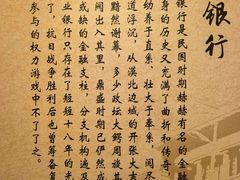 银行
银行是民国时期赫赫有名的金融
历史又充满了曲折和传奇，
幼养于直系，壮大于奉系，阅尽
道浮沉，从漠北边城的开张大吉
黯然谢幕，多少政坛大鳄周旋其
闻出入其里，鼎盛时期已俨然成
或缺的金融支柱，分支机构遍及
业银行只存在了短短十八年的光
了，抗日战争胜利后也曾筹备复
参与的权力游戏中不了了之。